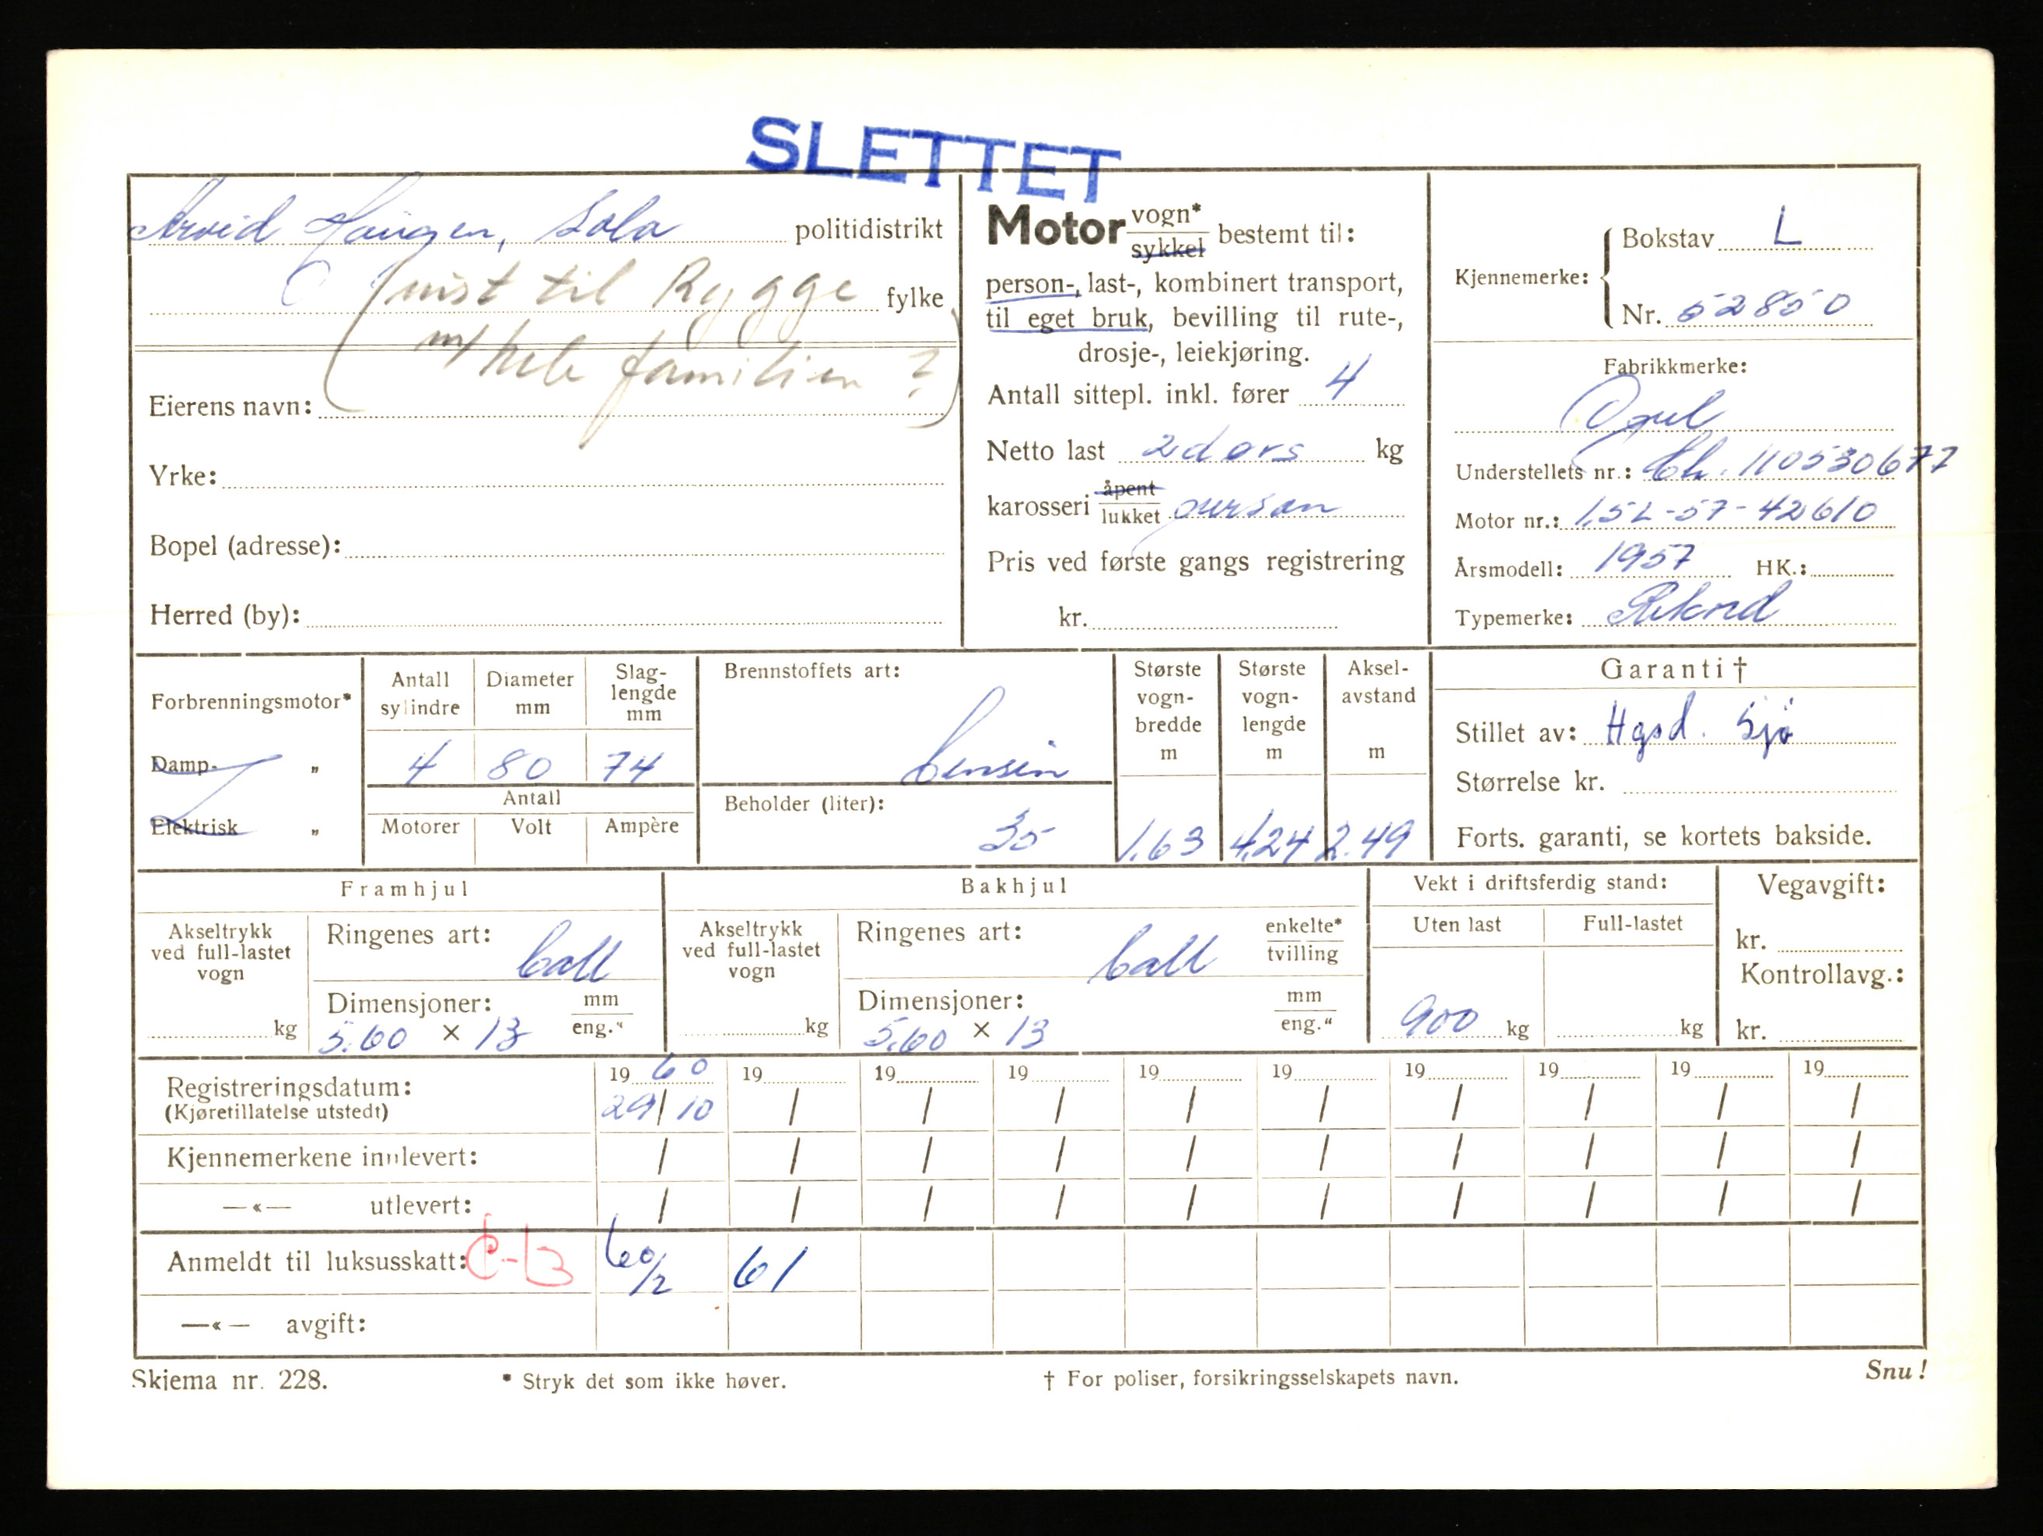 SLETTET
Arvid Haugen, Sola politidistrikt
(reist til Rygge fylke
m/ hele familien ?)
Eierens navn:
Yrke:
Bopel (adresse):
Herred (by):
Motor vogn* sykkel bestemt til:
person-, last-, kombinert transport,
til eget bruk, bevilling til rute-,
drosje-, leiekjøring.
Antall sittepl. inkl. fører 4
Netto last 2 dørs kg
karosseri åpent lukket person
Pris ved første gangs registrering
kr.
Kjennemerke:
Bokstav L
Nr. 52850
Fabrikkmerke:
Opel
Understellets nr.: Ch. 110530677
Motor nr.: 1,5L-57-42610
Årsmodell: 1957 HK.:
Typemerke: Rekord
Forbrenningsmotor*
Damp- „
Elektrisk „
Antall sylindre
4
Diameter mm
80
Slag-
lengde
mm
74
Antall
Motorer Volt Ampère
Brennstoffets art:
bensin
Beholder (liter):
35
Største
vogn-
bredde
m
1,63
Største
vogn-
lengde
m
4,24
Aksel-
avstand
m
2.49
Garanti †
Stillet av: Hgsd. Sjø
Størrelse kr.
Forts. garanti, se kortets bakside.
Framhjul
Akseltrykk
ved full-lastet
vogn
kg
Ringenes art:
ball
Dimensjoner: mm eng."
5.60 × 13
Bakhjul
Akseltrykk
ved full-lastet
vogn
kg
Ringenes art: enkelte* tvilling
ball
Dimensjoner: mm eng."
5,60 × 13
Vekt i driftsferdig stand:
Uten last Full-lastet
900 kg kg
Vegavgift:
kr.
Kontrollavg.:
kr.
Registreringsdatum: 19 60 19 19 19 19 19 19 19 19 19
(Kjøretillatelse utstedt) 29/10 / / / / / / / / /
Kjennemerkene innlevert: / / / / / / / / / /
—«— utlevert: / / / / / / / / / /
Anmeldt til luksusskatt: 60/2 61
—«— avgift:
Skjema nr. 228. * Stryk det som ikke høver. † For poliser, forsikringsselskapets navn. Snu!